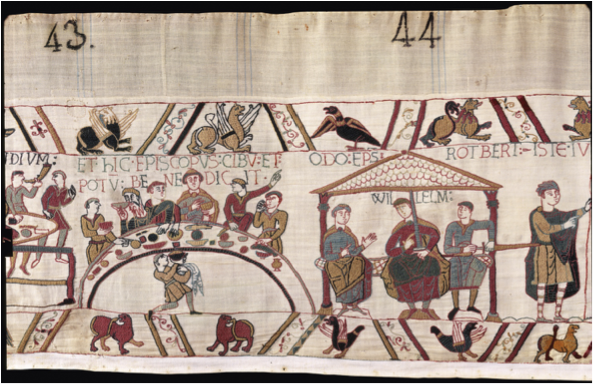 43.
44
DIUM:
ET hIC EPISCOPUS: CIBU: ET
POTU: BENEDICIT:
ODO: EPS:
WILLELM:
ROTBERT: ISTE IU